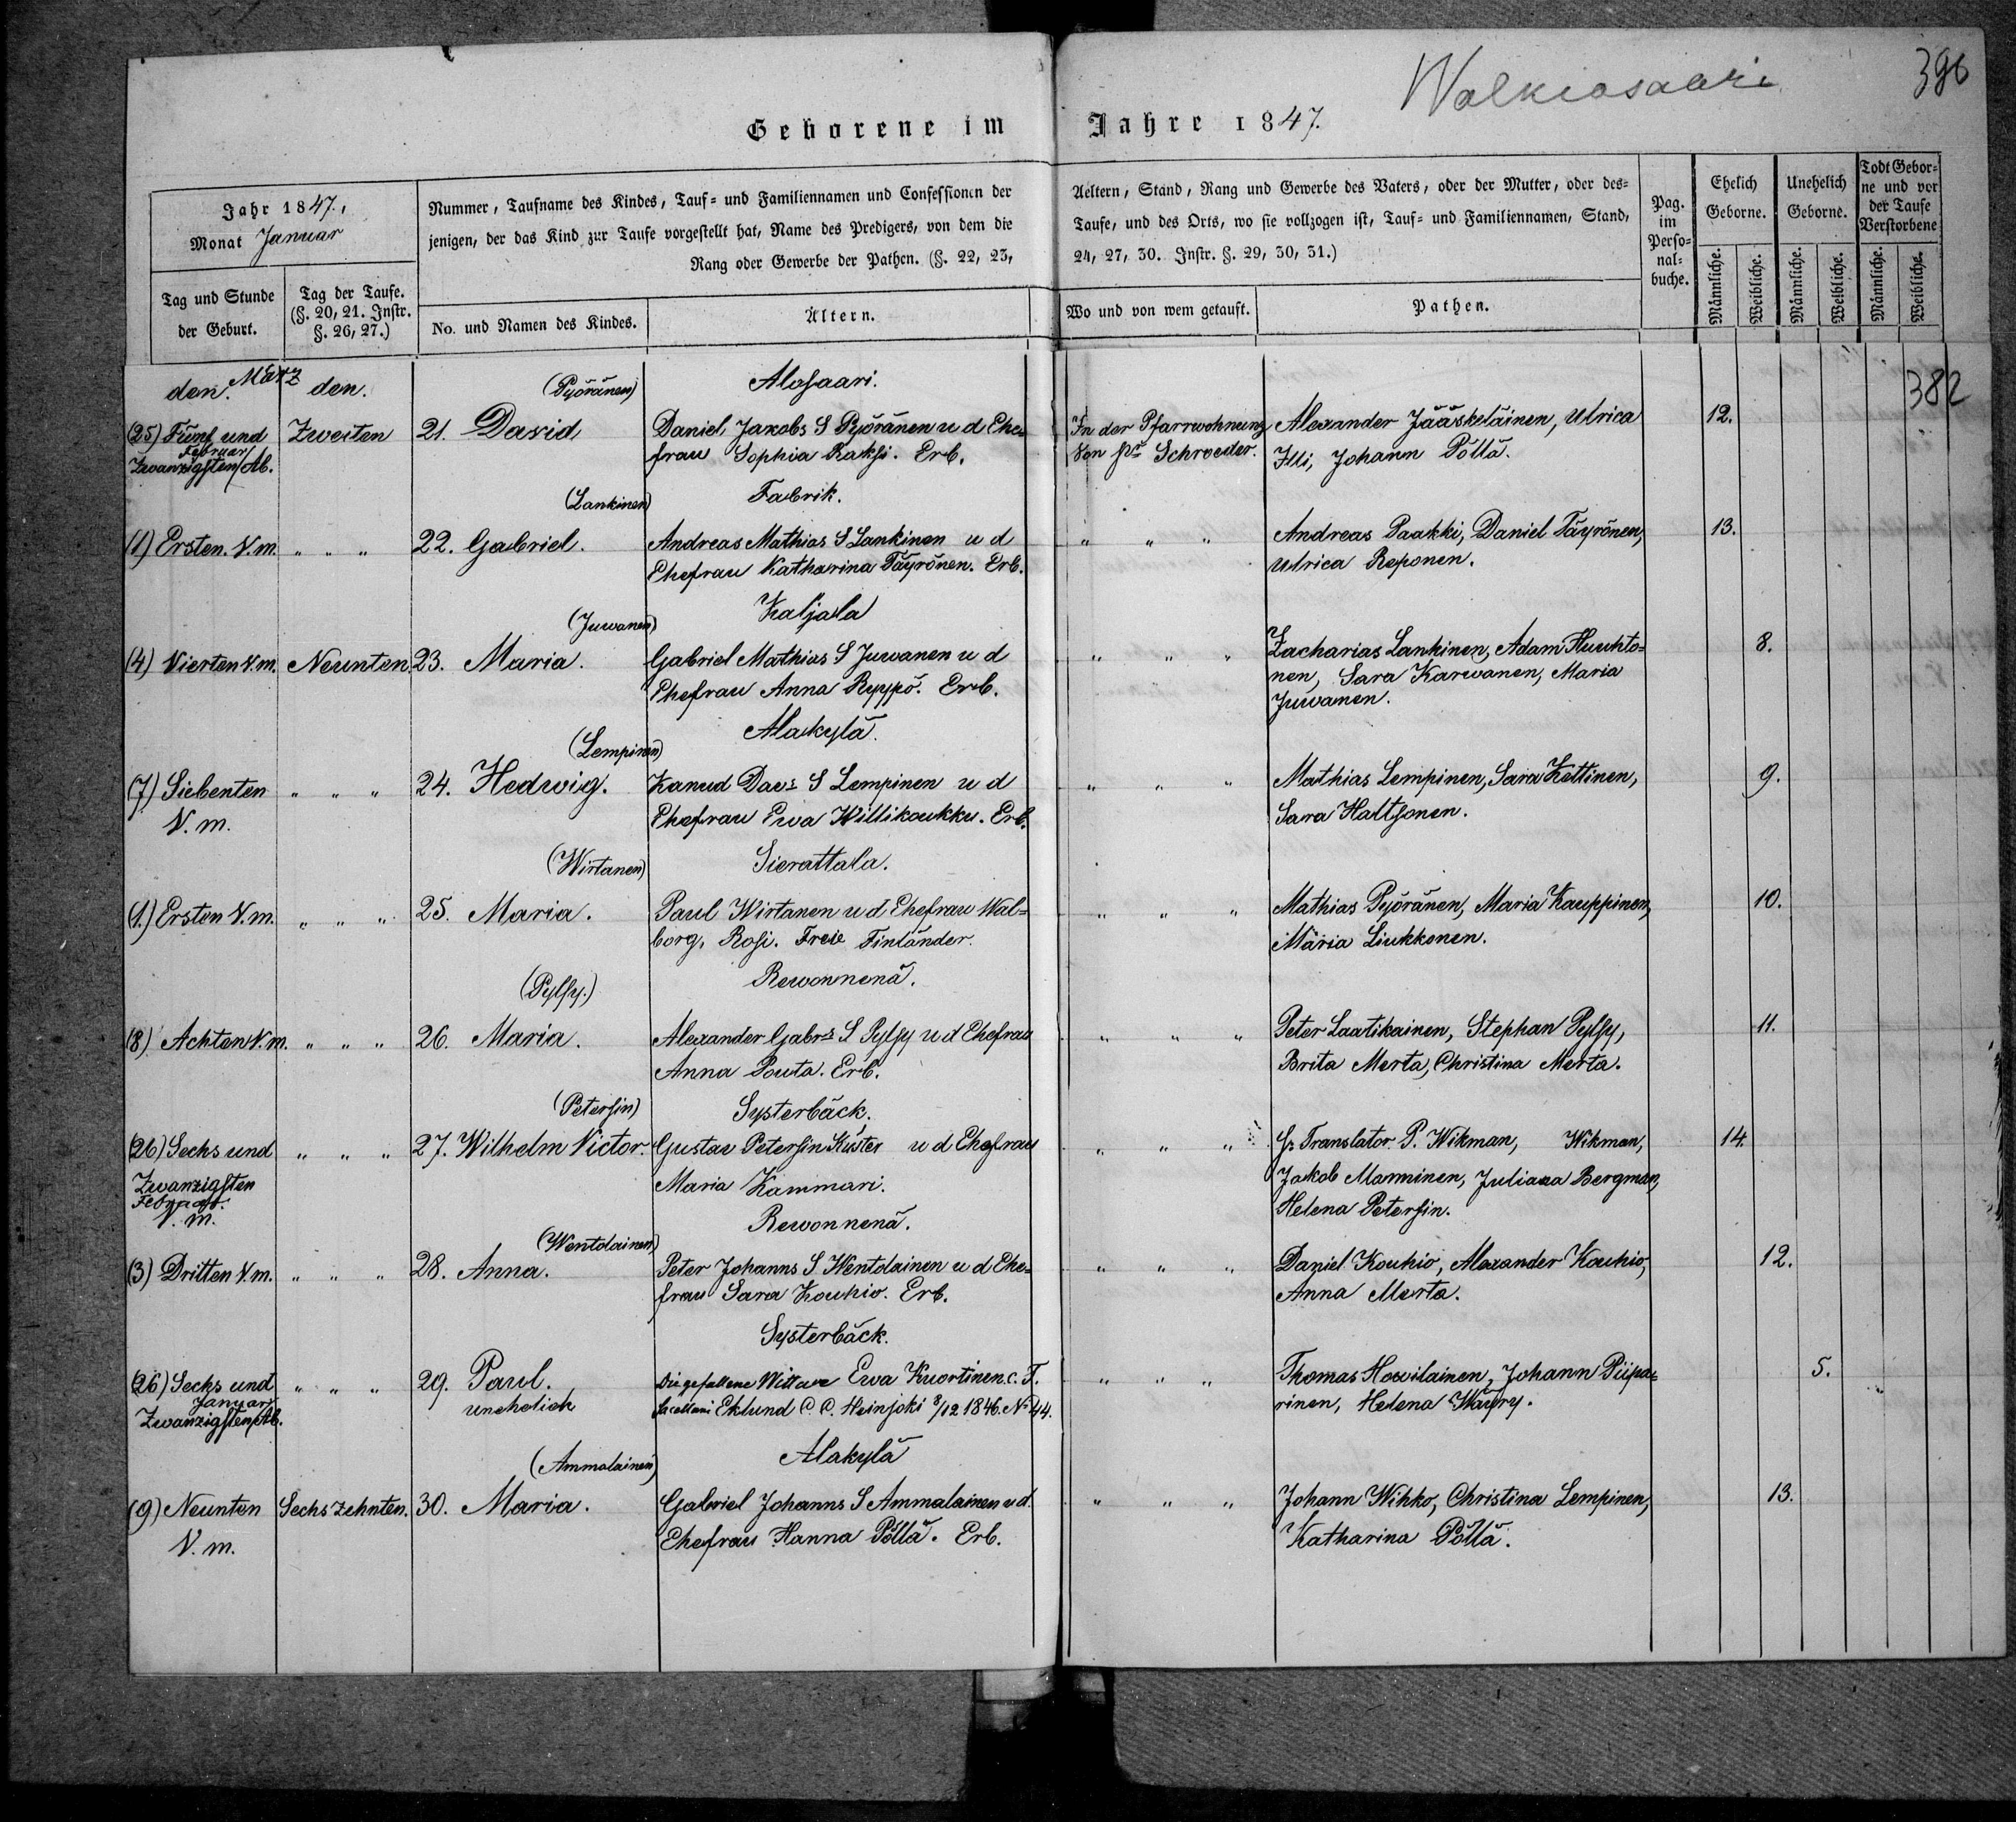 Walkiasaari
396
Geborene im Jahre 1847.
Jahr 1847.,
Monat Januar
Tag und Stunde
der Geburt.
Tag der Taufe.
(§. 20, 21. Instr.
§. 26, 27.)
Nummer, Taufname des Kindes, Tauf- und Familiennamen und Confessionen der
jenigen, der das Kind zur Taufe vorgestellt hat, Name des Predigers, von dem die
Rang oder Gewerbe der Pathen. (§. 22, 23,
No. und Namen des Kindes.
Ältern.
Aeltern, Stand, Rang und Gewerbe des Vaters, oder der Mutter, oder des-
Taufe, und des Orts, wo sie vollzogen ist, Tauf- und Familiennamen, Stand,
24, 27, 30. Instr. §. 29, 30, 31.)
Wo und von wem getauft.
Pathen.
Pag.
im
Perso-
nal-
buche.
Ehelich
Geborne.
Unehelich
Geborne.
Todt Gebor-
ne und vor
der Taufe
Verstorbene
Männliche.
Weibliche.
Männliche.
Weibliche.
Männliche.
Weibliche.
382
den. März den.
(Pyöränen) Alosaari.
(25) Fünf und Zweiten 21. David Daniel Jakobs S Pyöränen u d Ehe- In der Pfarrwohnung Alexander Jääskeläinen, Ulrica 12.
Februar
Zwanzigsten Ab. frau Sophia Raksi. Erb. Von Schroeder. Illi, Johann Pöllä.
(Lankinen) Fabrik.
(1) Ersten. V.m. " " " 22. Gabriel. Andreas Mathias S Lankinen u d " " " Andreas Paakki, Daniel Täyrönen, 13.
Ehefrau Katharina Täyrönen. Erb. Ulrica Reponen.
(Juwanen) Kaljala
(4) Vierten V.m. Neunten. 23. Maria. Gabriel Mathias S Juwanen u d " " " Zacharias Lankinen, Adam Huuhto- 8.
Ehefrau Anna Ryppö. Erb. nen, Sara Karwanen, Maria
Juwanen.
(Lempinen) Alakylä.
(7) Siebenten " " " 24. Hedwig. Kanud Davs S Lempinen u d " " " Mathias Lempinen, Sara Kettinen, 9.
V. m. Ehefrau Ewa Willikaukku. Erb. Sara Haltsonen.
(Wirtanen) Sierattala.
(1.) Ersten V.m. " " " 25. Maria. Paul Wirtanen u d Ehefrau Wal- " " " Mathias Pyöränen, Maria Kauppinen, 10.
borg, Rosi. Freie Finländer. Maria Liukkonen.
(Pylsy.) Rewonnenä.
(8) Achten V.m. " " " 26. Maria. Alexander Gabrs S Pylsy u d Ehefrau " " " Peter Laatikainen, Stephan Pylsy, 11.
Anna Pouta. Erb. Brita Merta, Christina Merta.
(Petersin) Systerbäck.
(26) Sechs und " " " 27. Wilhelm Victor. Gustav Petersin Küster u d Ehefrau " " " Translator P. Wikman, Wikman, 14.
Zwanzigsten Maria Kammari. Jakob Manninen, Juliana Bergman,
Februar.
V. m. Helena Petersin.
(Wentolainen) Rewonnenä.
(3) Dritten V.m. " " " 28. Anna. Peter Johanns S Wentolainen u d Ehe- " " " Daniel Kouhio, Alexander Kouhio, 12.
frau Sara Kouhio. Erb. Anna Merta.
Systerbäck.
(26) Sechs und " " " 29. Paul. Die gefallene Wittwe Ewa Kuortinen. c. T. " " " Thomas Howilainen, Johann Piipa- 5.
Januar
Zwanzigsten Ab. unehelich Sacellani Eklund C. C. Heinjoki 8/12 1846. No 44. rinen, Helena Wäyry.
(Ammalainen) Alakylä
(9) Neunten Sechszehnten. 30. Maria. Gabriel Johanns S Ammalainen u d. " " " Johann Wihko, Christina Lempinen, 13.
V. m. Ehefrau Hanna Pöllä. Erb. Katharina Pöllä.